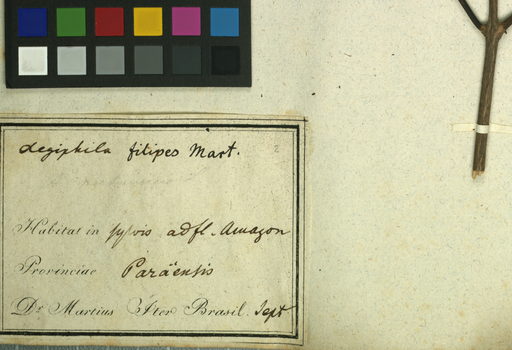 Aegiphila filipes Mart.
2
Habitat in sylvis ad fl. Amazon
Provinciae Paraënsis
Dr. Martius Iter Brasil. Sept